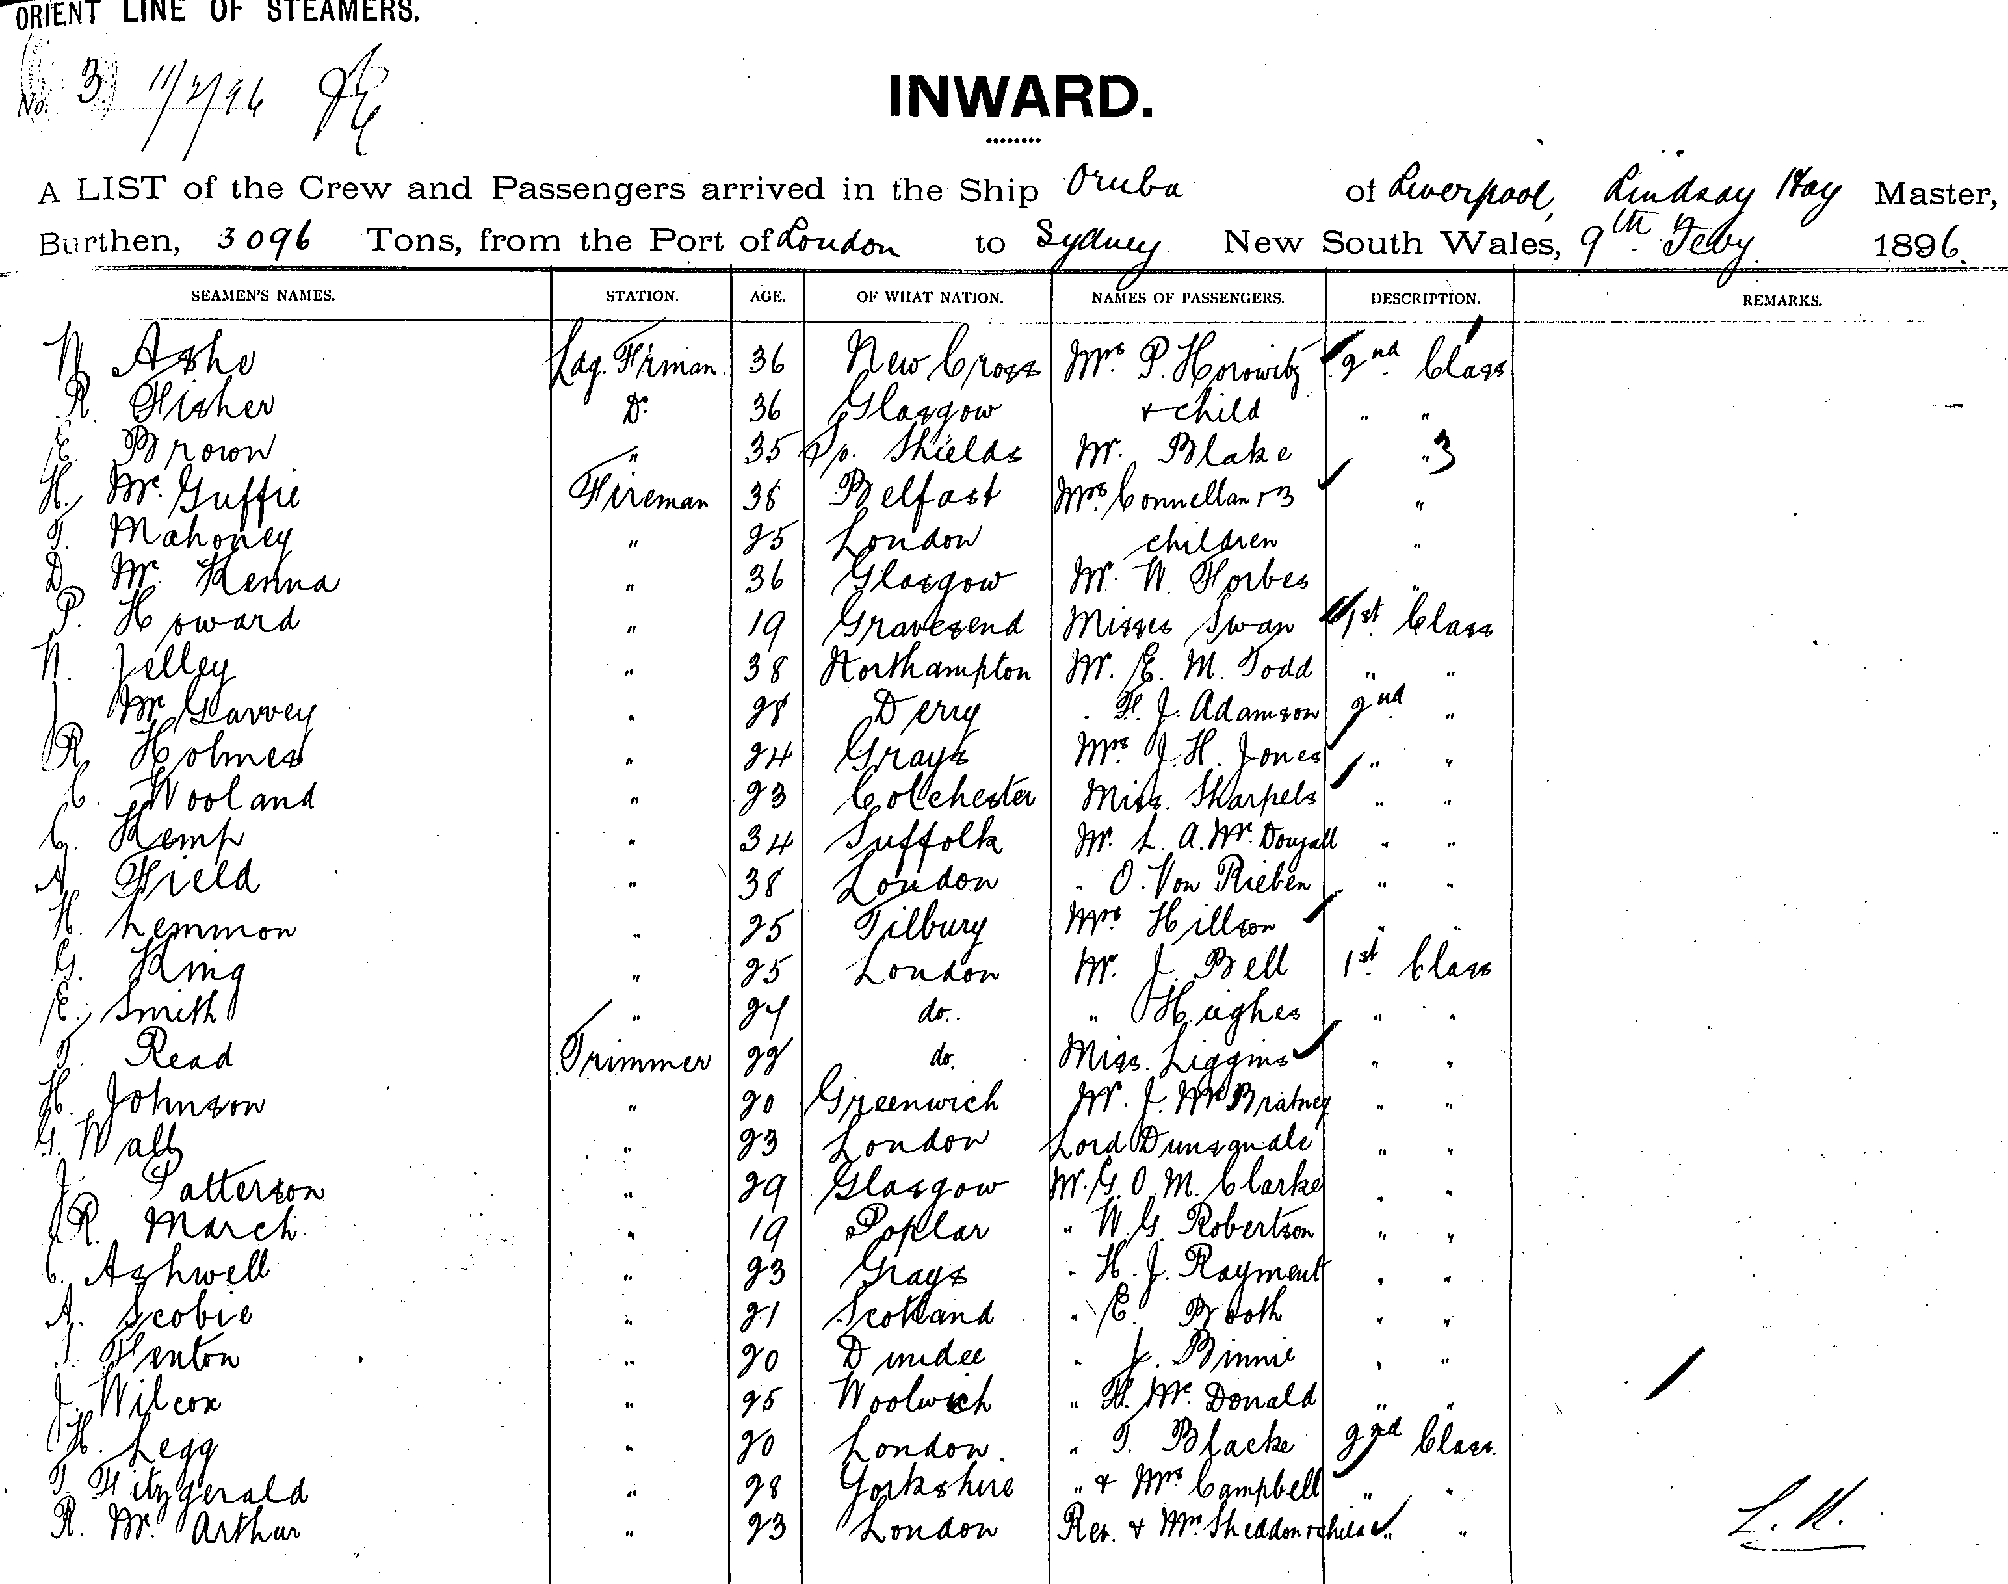 ORIENT LINE OF STEAMERS.
No. 3 11/2/96
INWARD.
A LIST of the Crew and Passengers arrived in the Ship Oruba of Liverpool, Lindsay Hay Master,
Burthen, 3096 Tons, from the Port of London to Sydney New South Wales, 9th Feby. 1896.
SEAMEN'S NAMES. STATION. AGE. OF WHAT NATION. NAMES OF PASSENGERS. DESCRIPTION. REMARKS.
W Ashe Ldg. Firman 36 New Cross Mrs P. Horowitz 2nd Class
R. Fisher Do 36 Glasgow + child " "
E. Brown " 35 So. Shields Mr. Blake " 3
H. Mc Guffie Fireman 38 Belfast Mrs Connellan + 3 "
T. Mahoney " 25 London children "
D. Mc Kenna " 36 Glasgow Mr. W. Forbes "
P. Howard " 19 Gravesend Misses Swan 1st Class
W. Jelley " 38 Northampton Mr. E. M. Todd " "
J. Mc Garvey " 28 Derry " F. J. Adamson 2nd "
R. Holmes " 24 Grays Mrs J. H. Jones " "
C. Wooland " 23 Colchester Miss. Sharpels " "
C. Kemp " 34 Suffolk Mr. L. A. Mc Dougall " "
A. Field " 38 London " O. Von Rieben " "
H. Lemmon " 25 Tilbury Mrs Hillson " "
G. King " 25 London Mr. J. Bell 1st Class
E. Smith " 24 do. " Hughes " "
T. Read Trimmer 22 do. Miss. Liggins " "
H. Johnson " 20 Greenwich Mr. J. Mc Bratney " "
G. Wall " 23 London Lord Dunsgnale " "
J. Patterson " 29 Glasgow Mr. G. O. M. Clarke " "
R. March. " 19 Poplar " W. G. Robertson " "
C. Ashwell " 23 Grays " H. J. Rayment " "
A. Scobie " 21 Scotland " E. Booth " "
J. Fenton " 20 Dundee " J. Binnie " "
J. Wilcox " 25 Woolwich " H. Mc Donald " "
H. Legg " 20 London. " T. Blacke 2nd Class
T. Fitzgerald " 28 Yorkshire " + Mrs Campbell " "
R. Mc Arthur " 23 London Rev. + Mrs Sheddon + child " "
L. H.